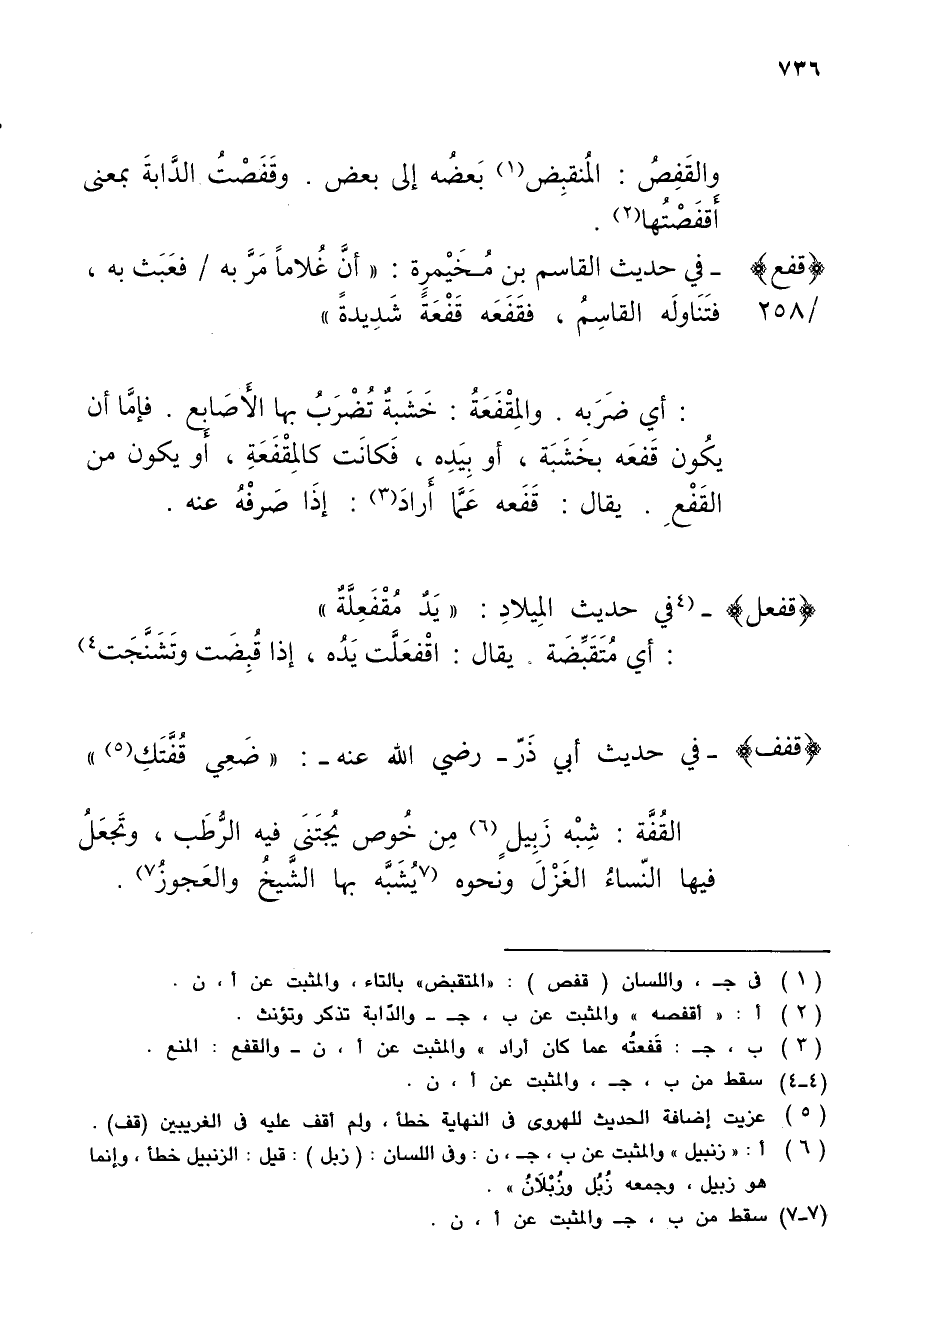 ٧٣٦
والقَفِصُ : المُنقبِض(١) بَعضُه إلى بعض . وقَفَصْتُ الدَّابةَ بمعنى
أَقفَصْتُها(٢) .
﴿قفع﴾ ـ في حديث القاسم بن مُـخَيْمِرة : « أنَّ غُلاماً مَرَّ به / فعَبَث به ،
/٢٥٨ فتَنَاولَه القاسِمُ ، فقَفَعَه قَفْعَةً شَدِيدةً »
: أي ضَرَبه . والمِقْفَعَةُ : خَشَبةٌ تُضْرَبُ بها الأَصَابع . فإمَّا أن
يكُون قَفعَه بخَشَبَة ، أو بِيَدِه ، فَكانَت كالمِقْفَعَةِ ، أَو يكون من
القَفْعِ . يقال : قَفَعه عَمَّا أَرادَ(٣) : إذَا صَرفْهُ عنه .
﴿قفعل﴾ ـ (٤في حديث المِيلادِ : « يَدٌ مُقْفَعِلَّةٌ »
: أي مُتَقَبِّضَة . يقال : اقْفَعَلَّت يَدُه ، إذا قُبِضَت وتَشَنَّجَت٤)
﴿قفف﴾ ـ في حديث أبي ذَرّ ـ رضي الله عنه ـ : « ضَعِي قُفَّتَكِ(٥) »
القُفَّة : شِبْه زَبِيلٍ(٦) مِن خُوص يُجتَنَى فيه الرُّطَب ، وتَجعَلُ
فيها النّساءُ الغَزْلَ ونحوه (٧يُشَبَّه بها الشَّيخُ والعَجوزُ٧) .
(١) فى جـ ، واللسان ( قفص ) : «المتقبض» بالتاء ، والمثبت عن أ ، ن .
(٢) أ : « أقفصه » والمثبت عن ب ، جـ ـ والدّابة تذكر وتؤنث .
(٣) ب ، جـ : قَفعتُه عما كان أراد » والمثبت عن أ ، ن ـ والقفع : المنع .
(٤ـ٤) سقط من ب ، جـ ، والمثبت عن أ ، ن .
(٥) عزيت إضافة الحديث للهروى فى النهاية خطأ ، ولم أقف عليه فى الغريبين (قف) .
(٦) أ : « زنبيل » والمثبت عن ب ، جـ ، ن : وفى اللسان : ( زبل ) : قيل : الزنبيل خطأ ، وإنما
هو زبيل ، وجمعه زُبُل وزُبْلَانُ » .
(٧ـ٧) سقط من ب ، جـ والمثبت عن أ ، ن .